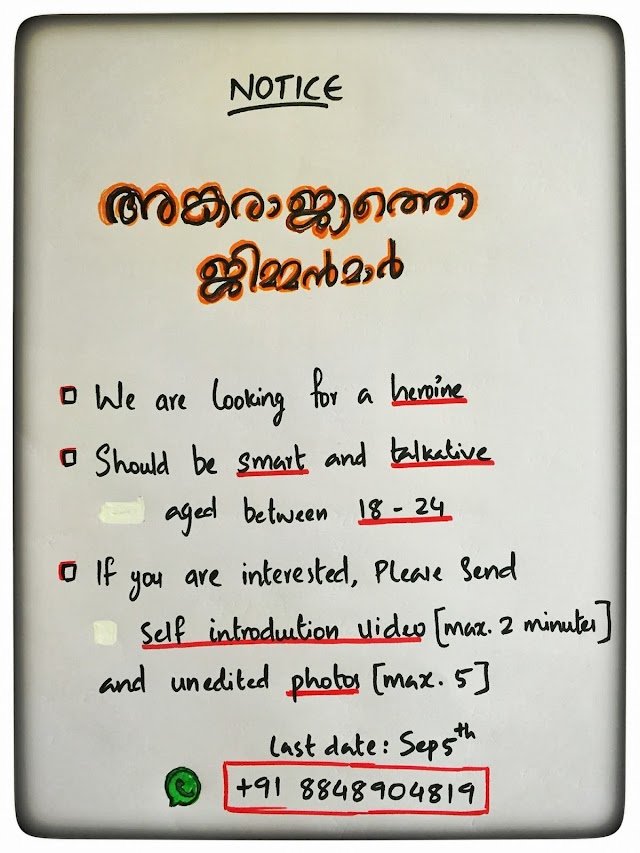 NOTICE
അങ്കരാജ്യത്തെ
ജിമ്മൻമാർ
We are looking for a heroine
Should be smart and talkative
aged between 18 - 24
If you are interested, Please Send
Self introduction video [max. 2 minutes]
and unedited photos [max. 5]
last date: Sep 5th
+91 8848904819